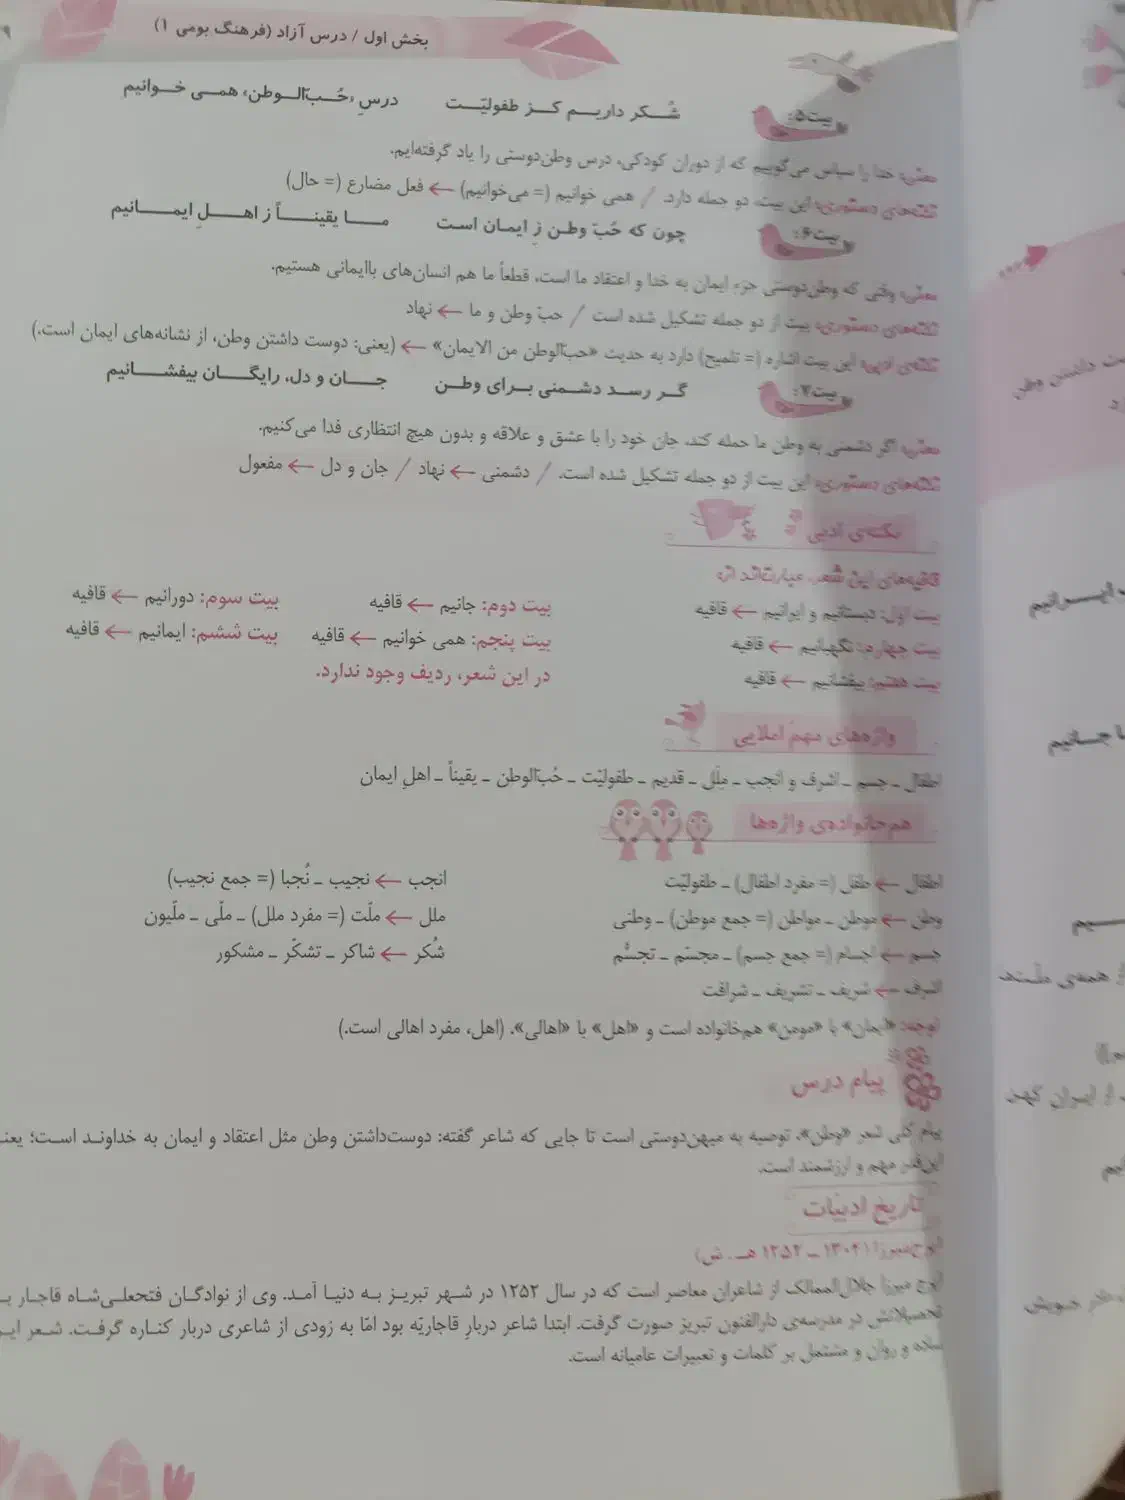 بخش اول / درس آزاد (فرهنگ بومی ۱)
بیت ۵: شُکر داریم کز طفولیّت درسِ «حُبّ‌الوطن» همی خوانیم
معنی: خدا را سپاس می‌گوییم که از دوران کودکی، درس وطن‌دوستی را یاد گرفته‌ایم.
نکته‌های دستوری: این بیت، دو جمله دارد. / همی خوانیم (= می‌خوانیم) ← فعل مضارع (= حال)
بیت ۶: چون که حُبّ وطن زِ ایمان است ما یقیناً ز اهلِ ایمانیم
معنی: وقتی که وطن‌دوستی جزء ایمان به خدا و اعتقاد ما است، قطعاً ما هم انسان‌های باایمانی هستیم.
نکته‌های دستوری: بیت از دو جمله تشکیل شده است / حبّ وطن و ما ← نهاد
نکته‌ی ادبی: این بیت اشاره (= تلمیح) دارد به حدیث «حبّ‌الوطن من الایمان» ← (یعنی: دوست داشتن وطن، از نشانه‌های ایمان است.)
بیت ۷: گر رسد دشمنی برای وطن جان و دل، رایگان بیفشانیم
معنی: اگر دشمنی به وطن ما حمله کند، جان خود را با عشق و علاقه و بدون هیچ انتظاری فدا می‌کنیم.
نکته‌های دستوری: این بیت از دو جمله تشکیل شده است. / دشمنی ← نهاد / جان و دل ← مفعول
نکته‌ی ادبی
قافیه‌های این شعر، عبارت‌اند از:
بیت اول: دبستانیم و ایرانیم ← قافیه بیت دوم: جانیم ← قافیه بیت سوم: دورانیم ← قافیه
بیت چهارم: نگهبانیم ← قافیه بیت پنجم: همی خوانیم ← قافیه بیت ششم: ایمانیم ← قافیه
بیت هفتم: بیفشانیم ← قافیه در این شعر، ردیف وجود ندارد.
واژه‌های مهمّ املایی
اطفال ـ جسم ـ اشرف و انجب ـ مِلَل ـ قدیم ـ طفولیّت ـ حُبّ‌الوطن ـ یقیناً ـ اهلِ ایمان
هم‌خانواده‌ی واژه‌ها
اطفال ← طفل (= مفرد اطفال) ـ طفولیّت انجب ← نجیب ـ نُجبا (= جمع نجیب)
وطن ← موطن ـ مواطن (= جمع موطن) ـ وطنی ملل ← ملّت (= مفرد ملل) ـ ملّی ـ ملّیون
جسم ← اجسام (= جمع جسم) ـ مجسّم ـ تجسُّم شُکر ← شاکر ـ تشکّر ـ مشکور
اشرف ← شریف ـ تشریف ـ شرافت
توجه: «ایمان» با «مومن» هم‌خانواده است و «اهل» با «اهالی». (اهل، مفرد اهالی است.)
پیام درس
پیام کلی شعر «وطن»، توصیه به میهن‌دوستی است تا جایی که شاعر گفته: دوست‌داشتن وطن مثل اعتقاد و ایمان به خداوند است؛ یعنی
این‌قدر مهم و ارزشمند است.
تاریخ ادبیّات
ایرج‌میرزا (۱۳۰۴ ـ ۱۲۵۲ هـ . ش)
ایرج میرزا جلال‌الممالک از شاعران معاصر است که در سال ۱۲۵۲ در شهر تبریز به دنیا آمد. وی از نوادگان فتحعلی‌شاه قاجار بـ
تحصیلاتش در مدرسه‌ی دارالفنون تبریز صورت گرفت. ابتدا شاعر دربارِ قاجاریّه بود امّا به زودی از شاعری دربار کناره گرفت. شعر ایر
ساده و روان و مشتمل بر کلمات و تعبیرات عامیانه است.
ت داشتن وطن
ایرانیم
جانیم
از همه‌ی ملّت‌ها
از ایران کهن
خویش